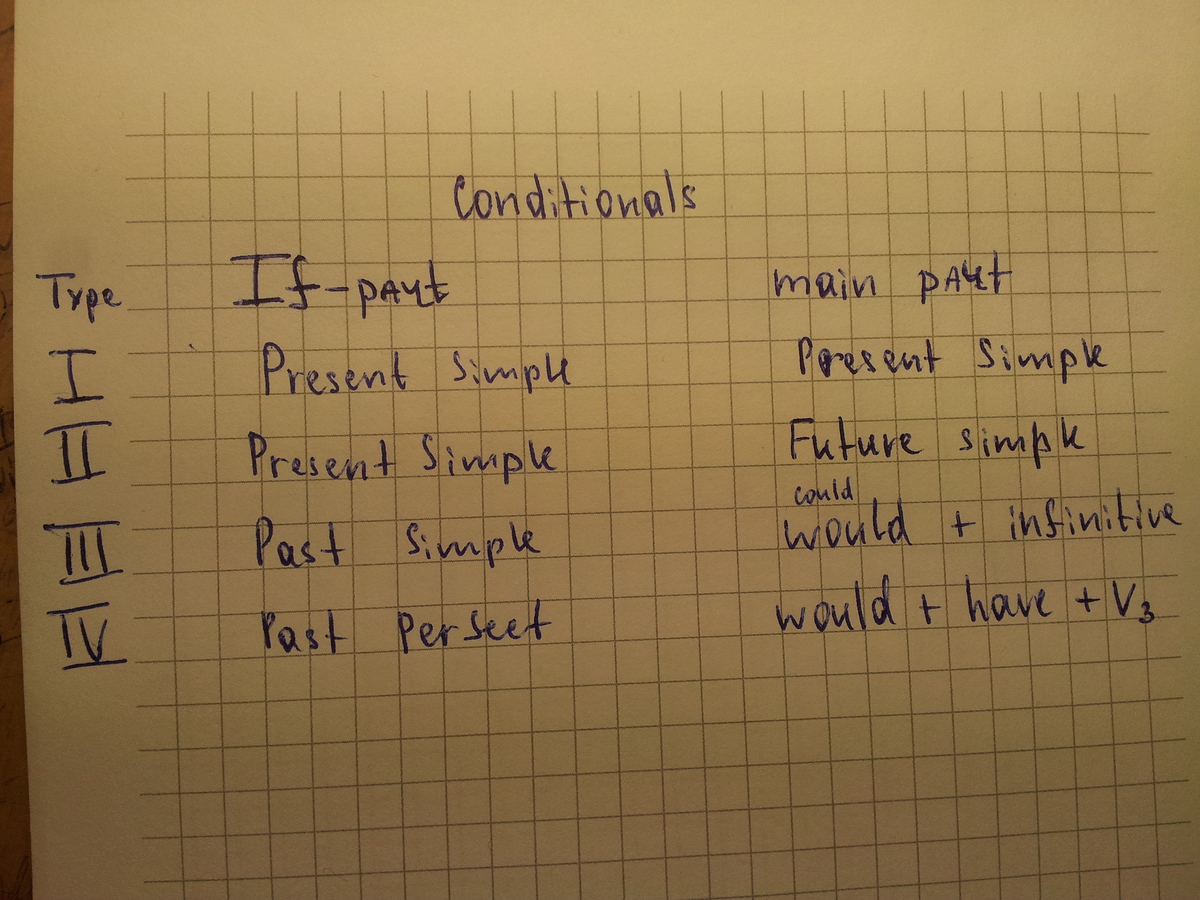 Conditionals
Type If-part main part
I Present Simple Present Simple
II Present Simple Future simple
could
III Past Simple would + infinitive
IV Past Perfect would + have + V3